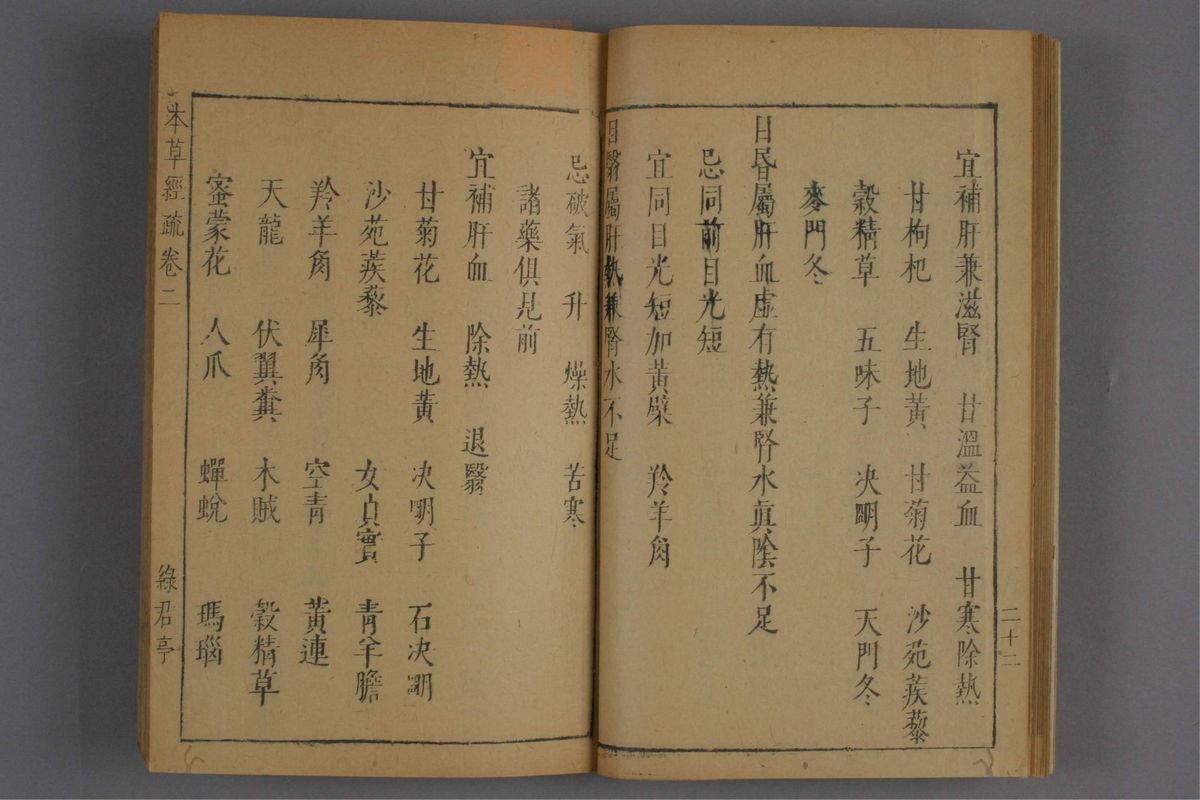 宜補肝兼滋腎 甘溫益血 甘寒除熱
甘枸杞 生地黃 甘菊花 沙苑蒺藜
穀精草 五味子 决明子 天門冬
麥門冬
目昏屬肝血虛有熱兼腎水眞陰不足
忌同前目光短
宜同目光短加黃檗 羚羊角
目翳屬肝熱兼腎水不足
二十二
忌破氣 升 燥熱 苦寒
諸藥俱見前
宜補肝血 除熱 退翳
甘菊花 生地黃 决明子 石决明
沙苑蒺藜 女貞實 青羊膽
羚羊角 犀角 空青 黃連
天龍 伏翼糞 木賊 穀精草
蜜蒙花 人爪 蟬蛻 瑪瑙
本草經疏卷二 綠君亭